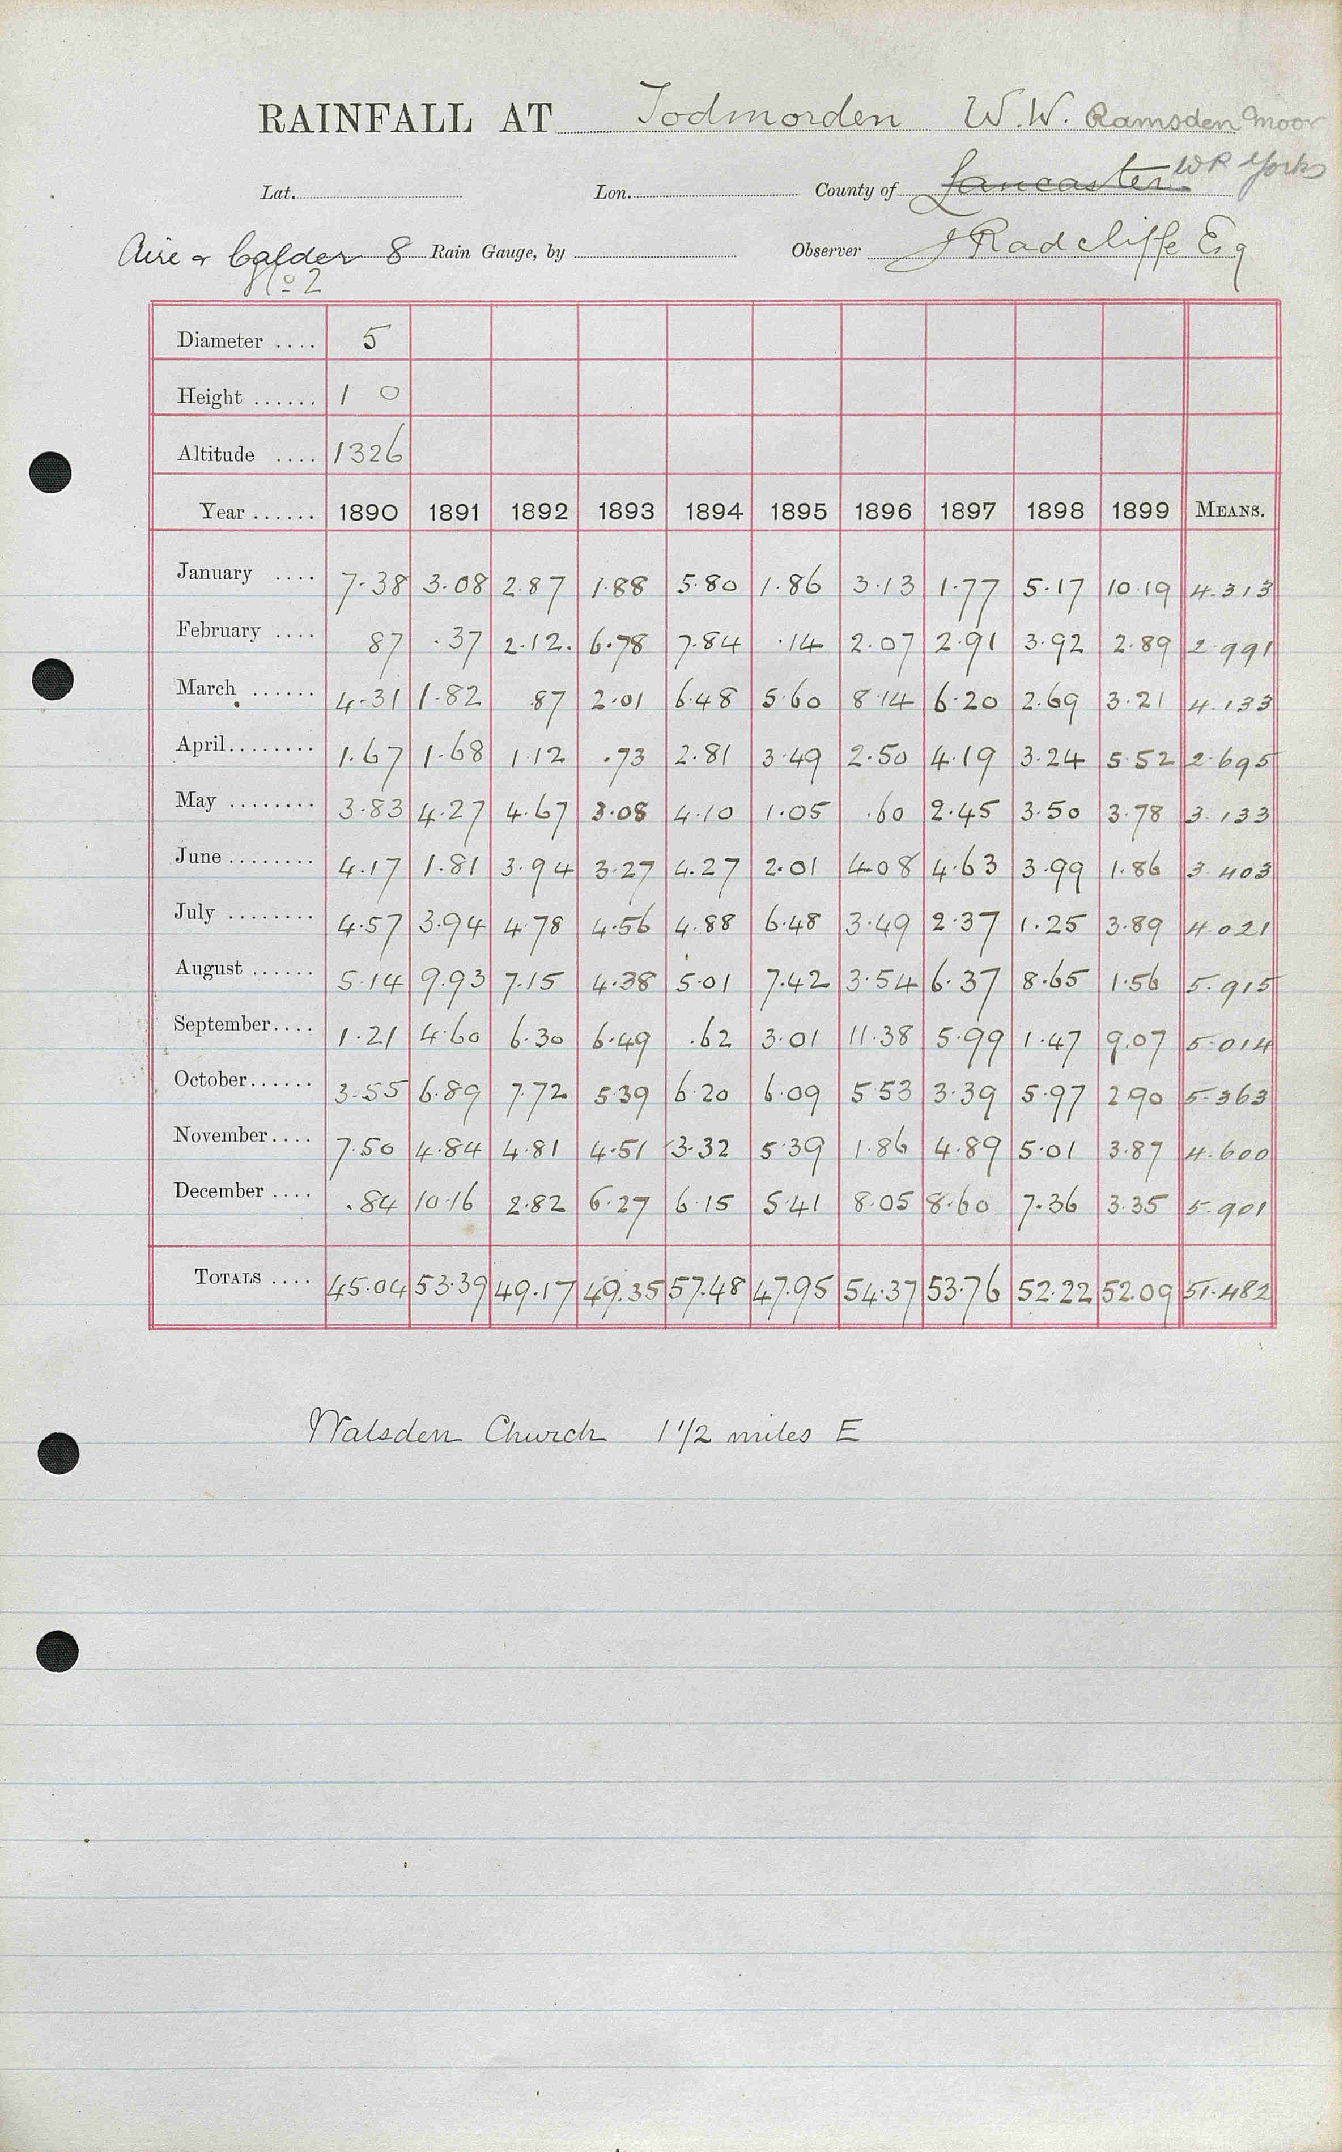 RAINFALL AT Todmorden W.W. Ramsden Moor
Lat. Lon. County of Lancaster WR Yorks
Aire & Calder 8 Rain Gauge, by Observer J Radcliffe Esq
No 2
Diameter .... 5
Height ...... 1 0
Altitude .... 1326
Year ...... 1890 1891 1892 1893 1894 1895 1896 1897 1898 1899 MEANS.
January .... 7.38 3.08 2.87 1.88 5.80 1.86 3.13 1.77 5.17 10.19 4.313
February .... 87 .37 2.12. 6.78 7.84 .14 2.07 2.91 3.92 2.89 2.991
March ...... 4.31 1.82 .87 2.01 6.48 5.60 8.14 6.20 2.69 3.21 4.133
April........ 1.67 1.68 1.12 .73 2.81 3.49 2.50 4.19 3.24 5.52 2.695
May ........ 3.83 4.27 4.67 3.08 4.10 1.05 .60 2.45 3.50 3.78 3.133
June ........ 4.17 1.81 3.94 3.27 4.27 2.01 4.08 4.63 3.99 1.86 3.403
July ........ 4.57 3.94 4.78 4.56 4.88 6.48 3.49 2.37 1.25 3.89 4.021
August ...... 5.14 9.93 7.15 4.38 5.01 7.42 3.54 6.37 8.65 1.56 5.915
September.... 1.21 4.60 6.30 6.49 .62 3.01 11.38 5.99 1.47 9.07 5.014
October...... 3.55 6.89 7.72 5.39 6.20 6.09 5.53 3.39 5.97 2.90 5.363
November.... 7.50 4.84 4.81 4.51 3.32 5.39 1.86 4.89 5.01 3.87 4.600
December .... .84 10.16 2.82 6.27 6.15 5.41 8.05 8.60 7.36 3.35 5.901
TOTALS .... 45.04 53.39 49.17 49.35 57.48 47.95 54.37 53.76 52.22 52.09 51.482
Walsden Church 1 1/2 miles E